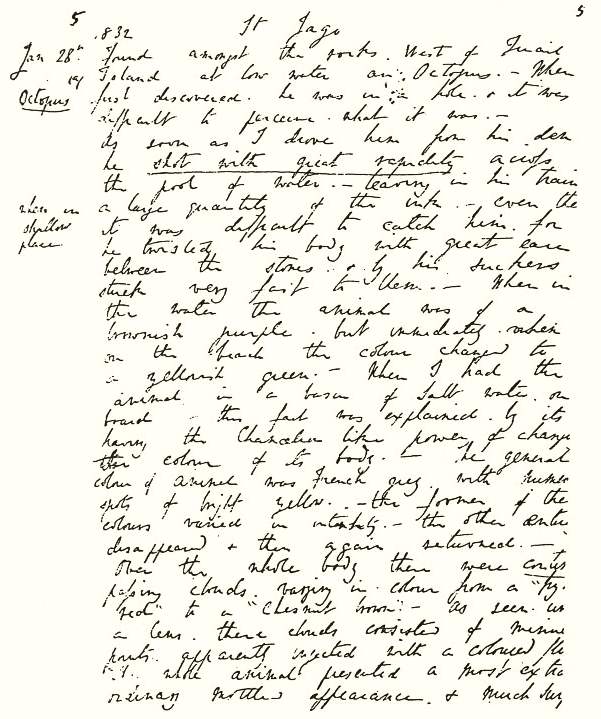 5
5
1832 St Jago
Jan 28th found amongst the rocks West of Quail
(a) Island at low water an Octopus. - When
Octopus first discovered he was in a hole & it was
difficult to perceive what it was. -
As soon as I drove him from his den
he shot with great rapidity across
the pool of water. - leaving in his train
a large quantity of the ink. - even then
when in shallow place
it was difficult to catch him, for
he twisted his body with great ease
between the stones & by his suckers
stuck very fast to them. - When in
the water the animal was of a
brownish purple, but immediately when
on the beach the colour changed to
a yellowish green. - When I had the
animal in a basin of salt water on
board this fact was explained by its
having the Chamelion like power of change
the colour of its body. - The general
colour of animal was French grey with numer
spots of bright yellow. - the former of the
colours varied in intensity. - the other entire
disappeared & then again returned. -
Over the whole body there were conti
passing clouds, varying in colour from a "hy
red" to a "Chesnut brown". - As seen in
a lens these clouds consisted of minute
points apparently injected with a coloured fl
whole animal presented a most extra
ordinary mottled appearance, & much sur